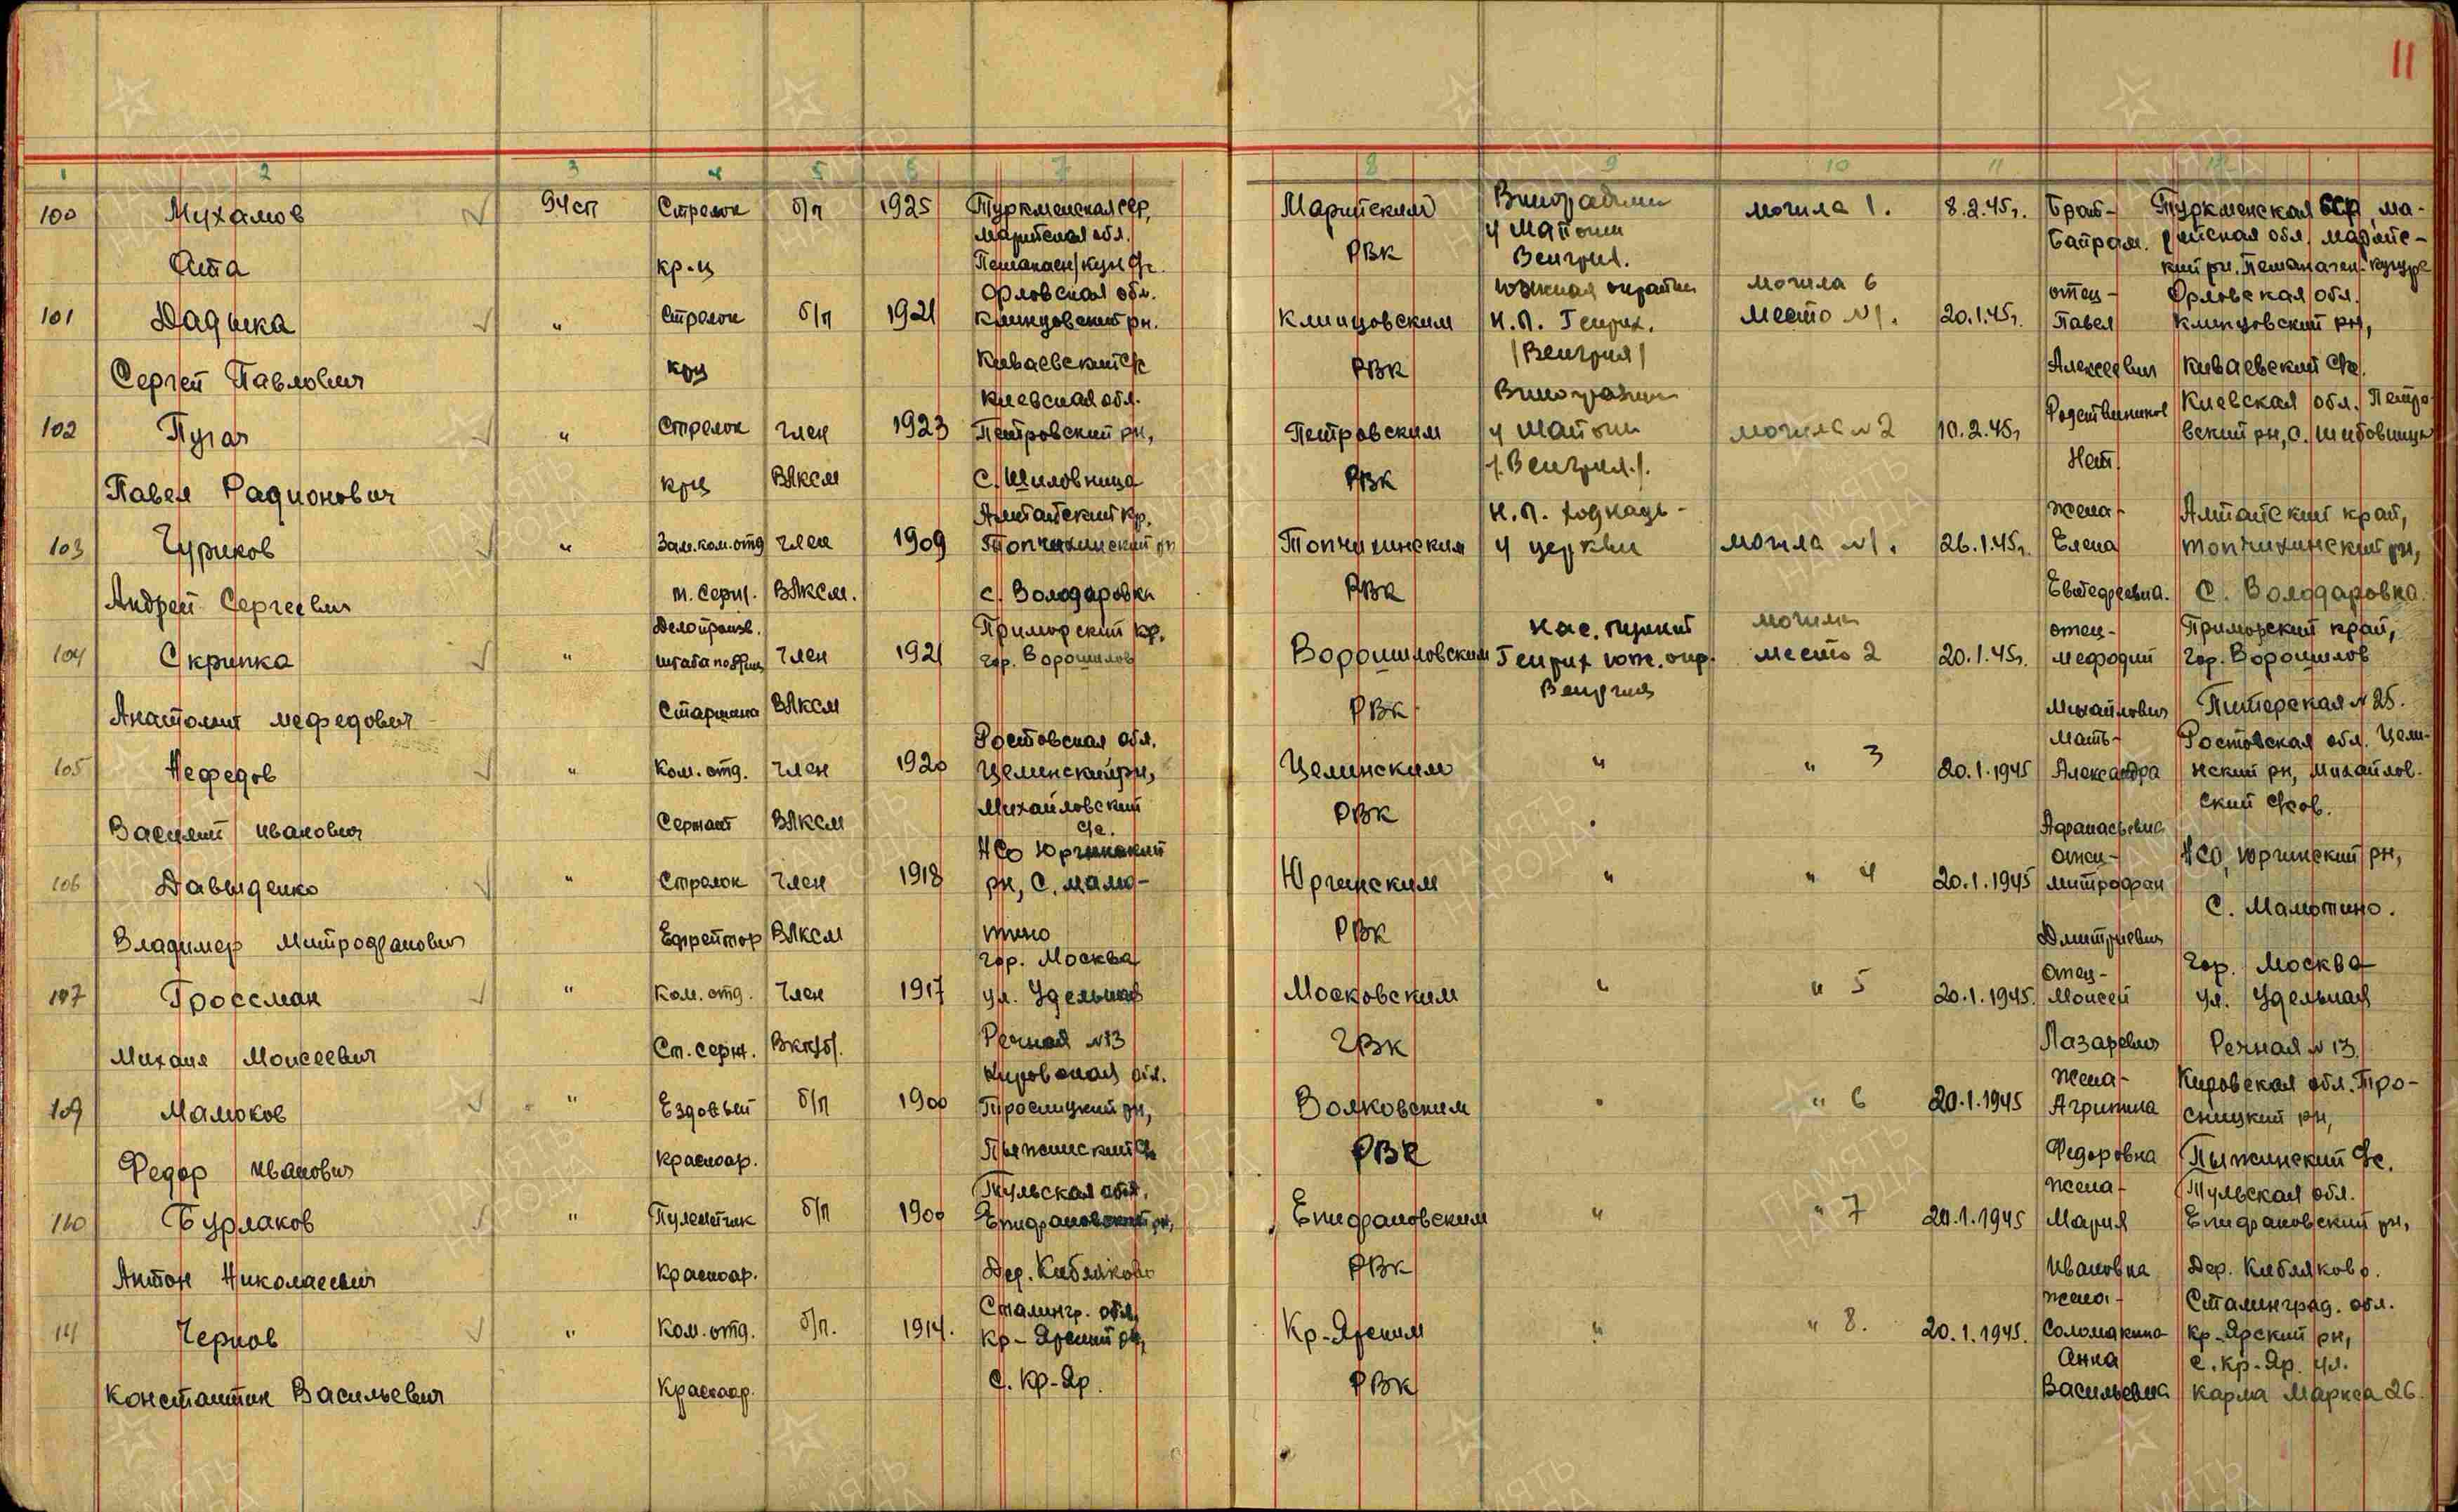 11
1 2 3 4 5 6 7 8 9 10 11 12
100 Мухамов 94 сп Стрелок б/п 1925 Туркменская ССР, Марийским Виноградники могила 1. 8.2.45г. Брат- Туркменская ССР, ма-
Марийская обл. у Майоши Байрам. рийская обл. Марийс-
Ата кр-ц РВК Венгрия. кий рн.
101 Дадыка " Стрелок б/п 1921 Орловская обл. Клинцовским южная окраина могила 6 20.1.45г. отец- Орловская обл.
Клинцовский рн. н.п. Генрих. место №1. Павел Клинцовский рн,
Сергей Павлович крц Киваевский с/с РВК /Венгрия/ Алексеевич Киваевский с/с.
102 Пугач " Стрелок член 1923 Киевская обл. Петровским могила №2 10.2.45г Родственников Киевская обл. Петро-
Петровский рн, у Майоши вский рн, с.
Павел Радионович крц ВЛКСМ с. Шиловница РВК /.Венгрия./. Нет
103 Чуриков " Зам.ком.отд член 1909 Алтайский кр. Топчихинским н.п. могила №1. 26.1.45г. жена- Алтайский край,
Топчихинский рн у церкви Елена Топчихинский рн,
Андрей Сергеевич м. серж. ВЛКСМ. с. Володаровка РВК с. Володаровка.
104 Скрипка " Делопроизв. член 1921 Приморский кр. Ворошиловским нас. пункт могила 20.1.45г. отец- Приморский край,
штаба гор. Ворошилов Генрих юж. окр. место 2 Мефодий гор. Ворошилов
Анатолий Мефедович Старшина ВЛКСМ РВК Венгрия Михайлович Питерская №25.
105 Нефедов " Ком. отд. член 1920 Ростовская обл. Целинским " " 3 20.1.1945 Мать- Ростовская обл. Цели-
Целинский рн, Александра нский рн, Михайлов-
Василий Иванович Сержант ВЛКСМ Михайловский с/с. РВК Афанасьевна ский с/сов.
106 Давыденко " Стрелок член 1918 НСО Юргинский Юргинским " " 4 20.1.1945 отец- НСО, Юргинский рн,
рн, с. Мамо- Митрофан
Владимер Митрофанович Ефрейтор ВЛКСМ тино РВК Дмитриевич с. Мамотино.
107 Гроссман " Ком. отд. член 1917 гор. Москва Московским " " 5 20.1.1945. Отец- гор. Москва
ул. Удельная Моисей ул. Удельная
Михаил Моисеевич Ст. серж. ВКП/б/. Речная №13 ГВК Лазаревич Речная №13.
109 Малюков " Ездовый б/п 1900 Кировская обл. Волковским " " 6 20.1.1945 жена- Кировская обл. Про-
Просницкий рн, Агрипина сницкий рн,
Федор Иванович красноар. Пыжинский с/с РВК Федоровна Пыжинский с/с.
110 Бурлаков " Пулеметчик б/п 1900 Тульская обл. Епифановским " " 7 20.1.1945 жена- Тульская обл.
Епифановский рн, Мария Епифановский рн,
Антон Николаевич красноар. Дер. Кибляково РВК Ивановна Дер. Кибляково.
111 Чернов " Ком. отд. б/п. 1914. Сталингр. обл, Кр-Ярским " " 8. 20.1.1945. жена- Сталинград. обл.
Кр-Ярский рн, Соломакина Кр-Ярский рн,
Константин Васильевич Красноар. с. Кр-Яр. РВК Анна с. Кр-Яр. ул.
Васильевна Карла Маркса 26.